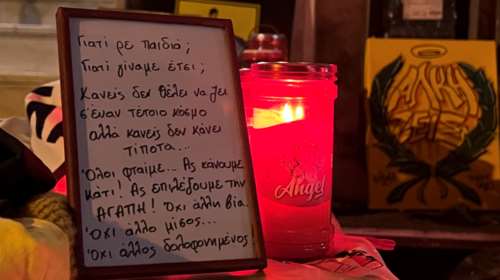 Γιατί ρε παιδιά;
Γιατί γίναμε έτσι;
Κανείς δεν θέλει να ζει
σ'έναν τέτοιο κόσμο
αλλά κανείς δεν κάνει
τίποτα...
Όλοι φταίμε... Ας κάνουμε
κάτι! Ας επιλέξουμε την
ΑΓΑΠΗ! Όχι άλλη βία.
Όχι άλλο μίσος...
Όχι άλλος δολοφονημένος
Angel
ΑΛΚΗ
ΖΕΙΣ